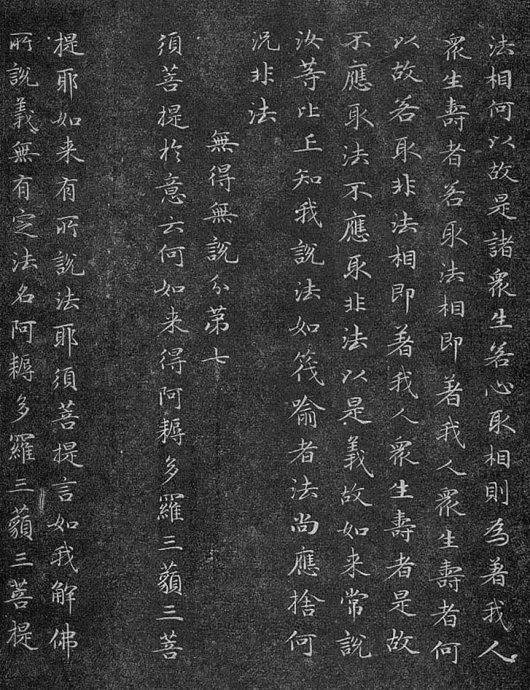 法相何以故是諸衆生若心取相則為著我人
衆生壽者若取法相即著我人衆生壽者何
以故若取非法相即著我人衆生壽者是故
不應取法不應取非法以是義故如来常說
汝等比丘知我說法如筏喻者法尚應捨何
況非法
無得無說分第七
須菩提於意云何如来得阿耨多羅三藐三菩
提耶如来有所說法耶須菩提言如我解佛
所說義無有定法名阿耨多羅三藐三菩提